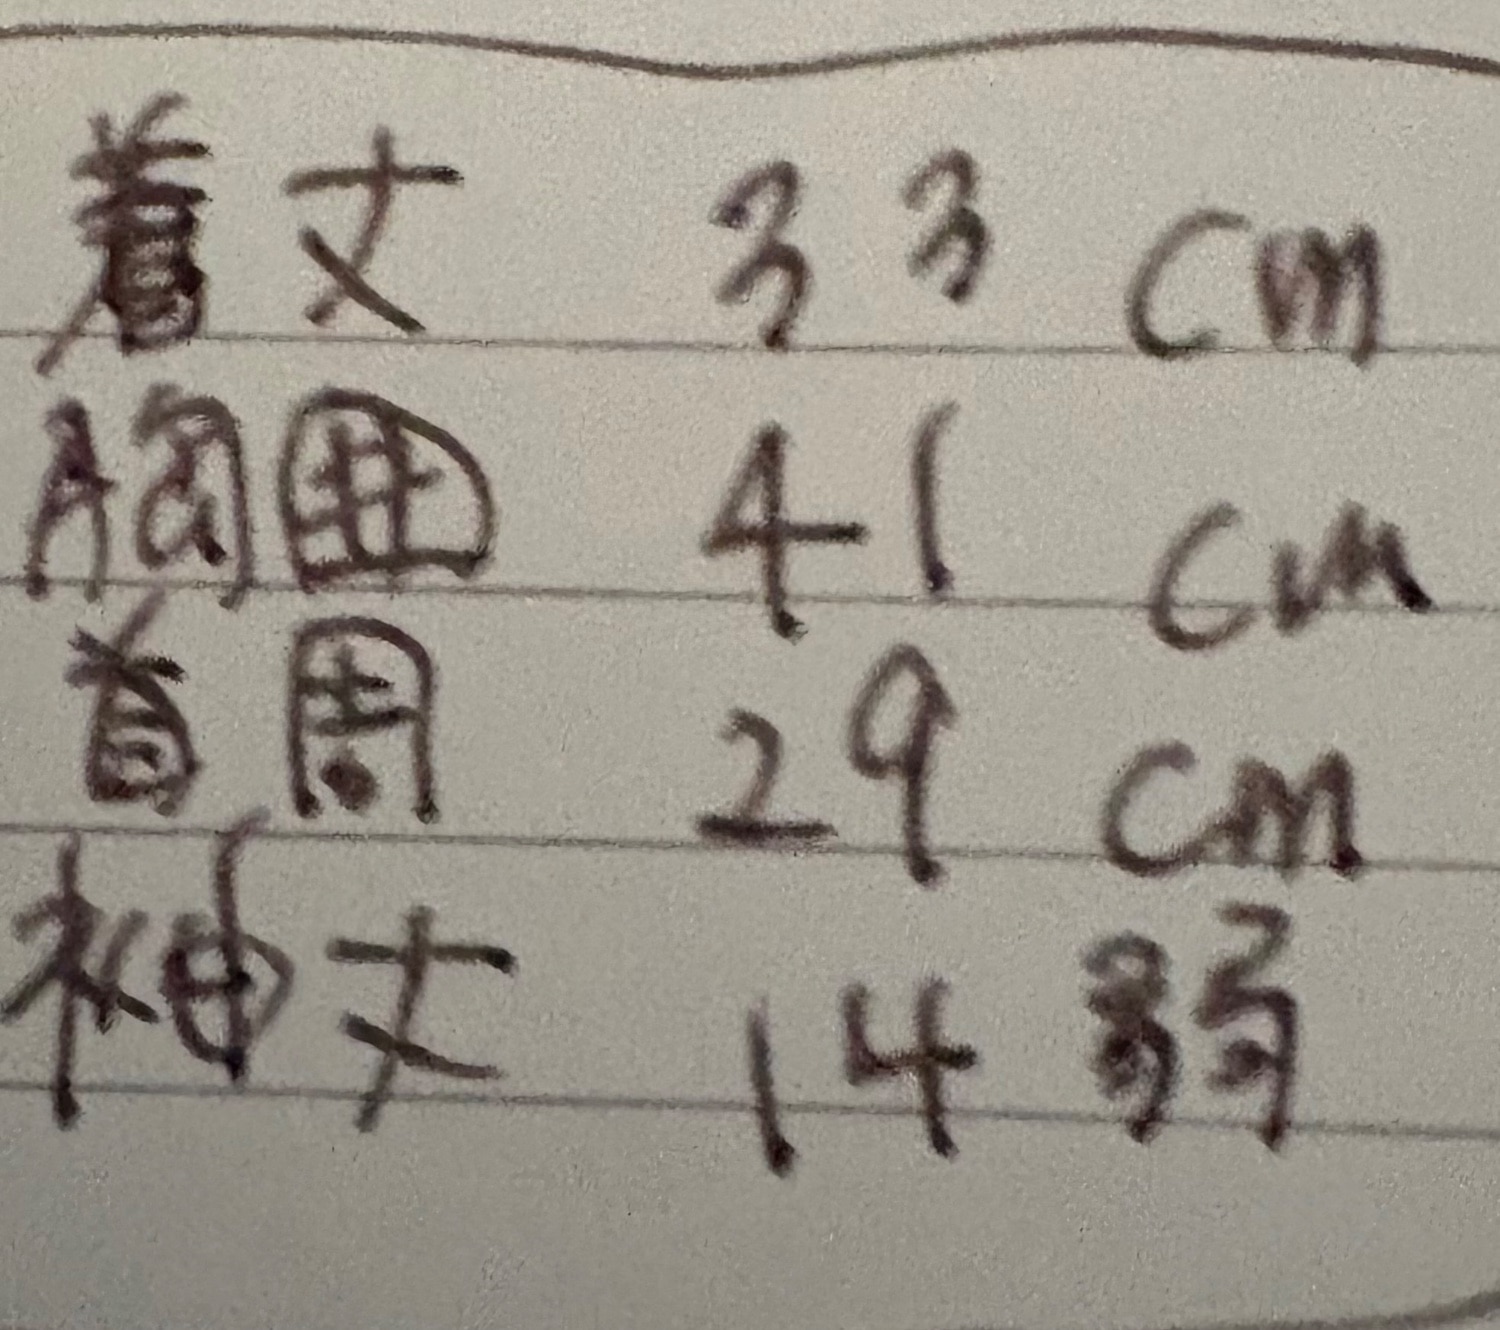 着丈 33 cm
胸囲 41 cm
首周 29 cm
袖丈 14弱